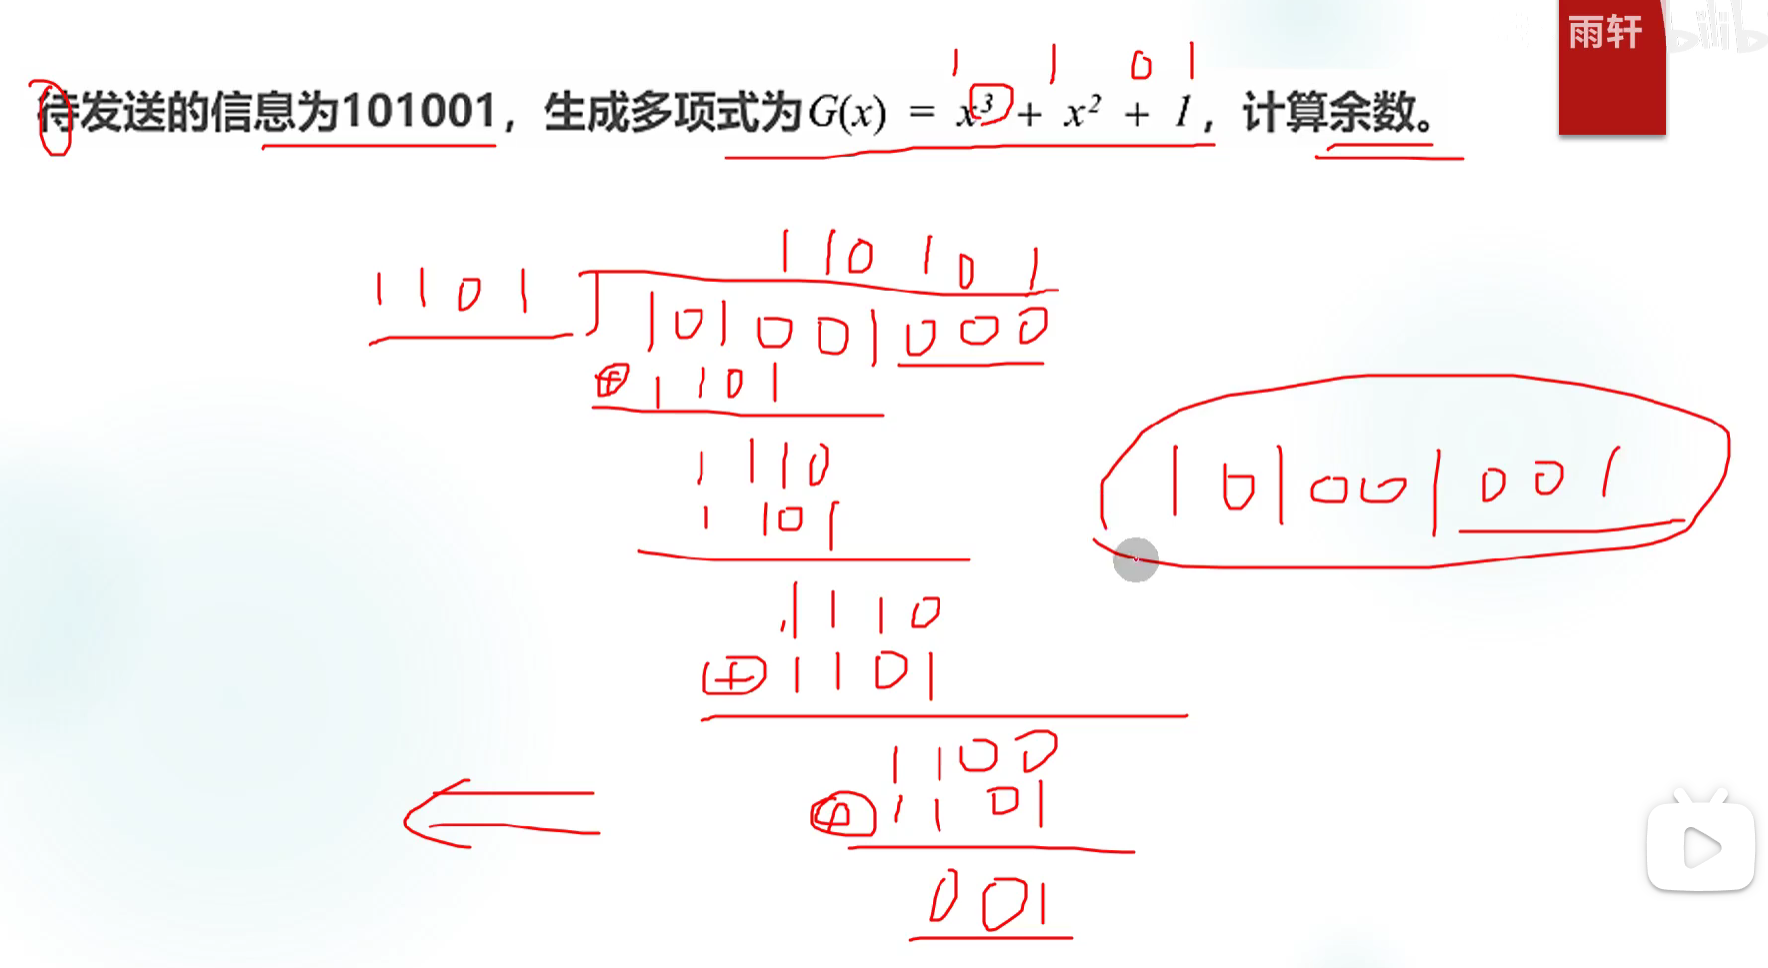 雨轩
bilib
1 1 0 1
待发送的信息为101001，生成多项式为G(x) = x³ + x² + 1，计算余数。
110101
1101 101001000
⊕ 1101
1110
1101
1110
⊕ 1101
1100
⊕ 1101
001
101001001